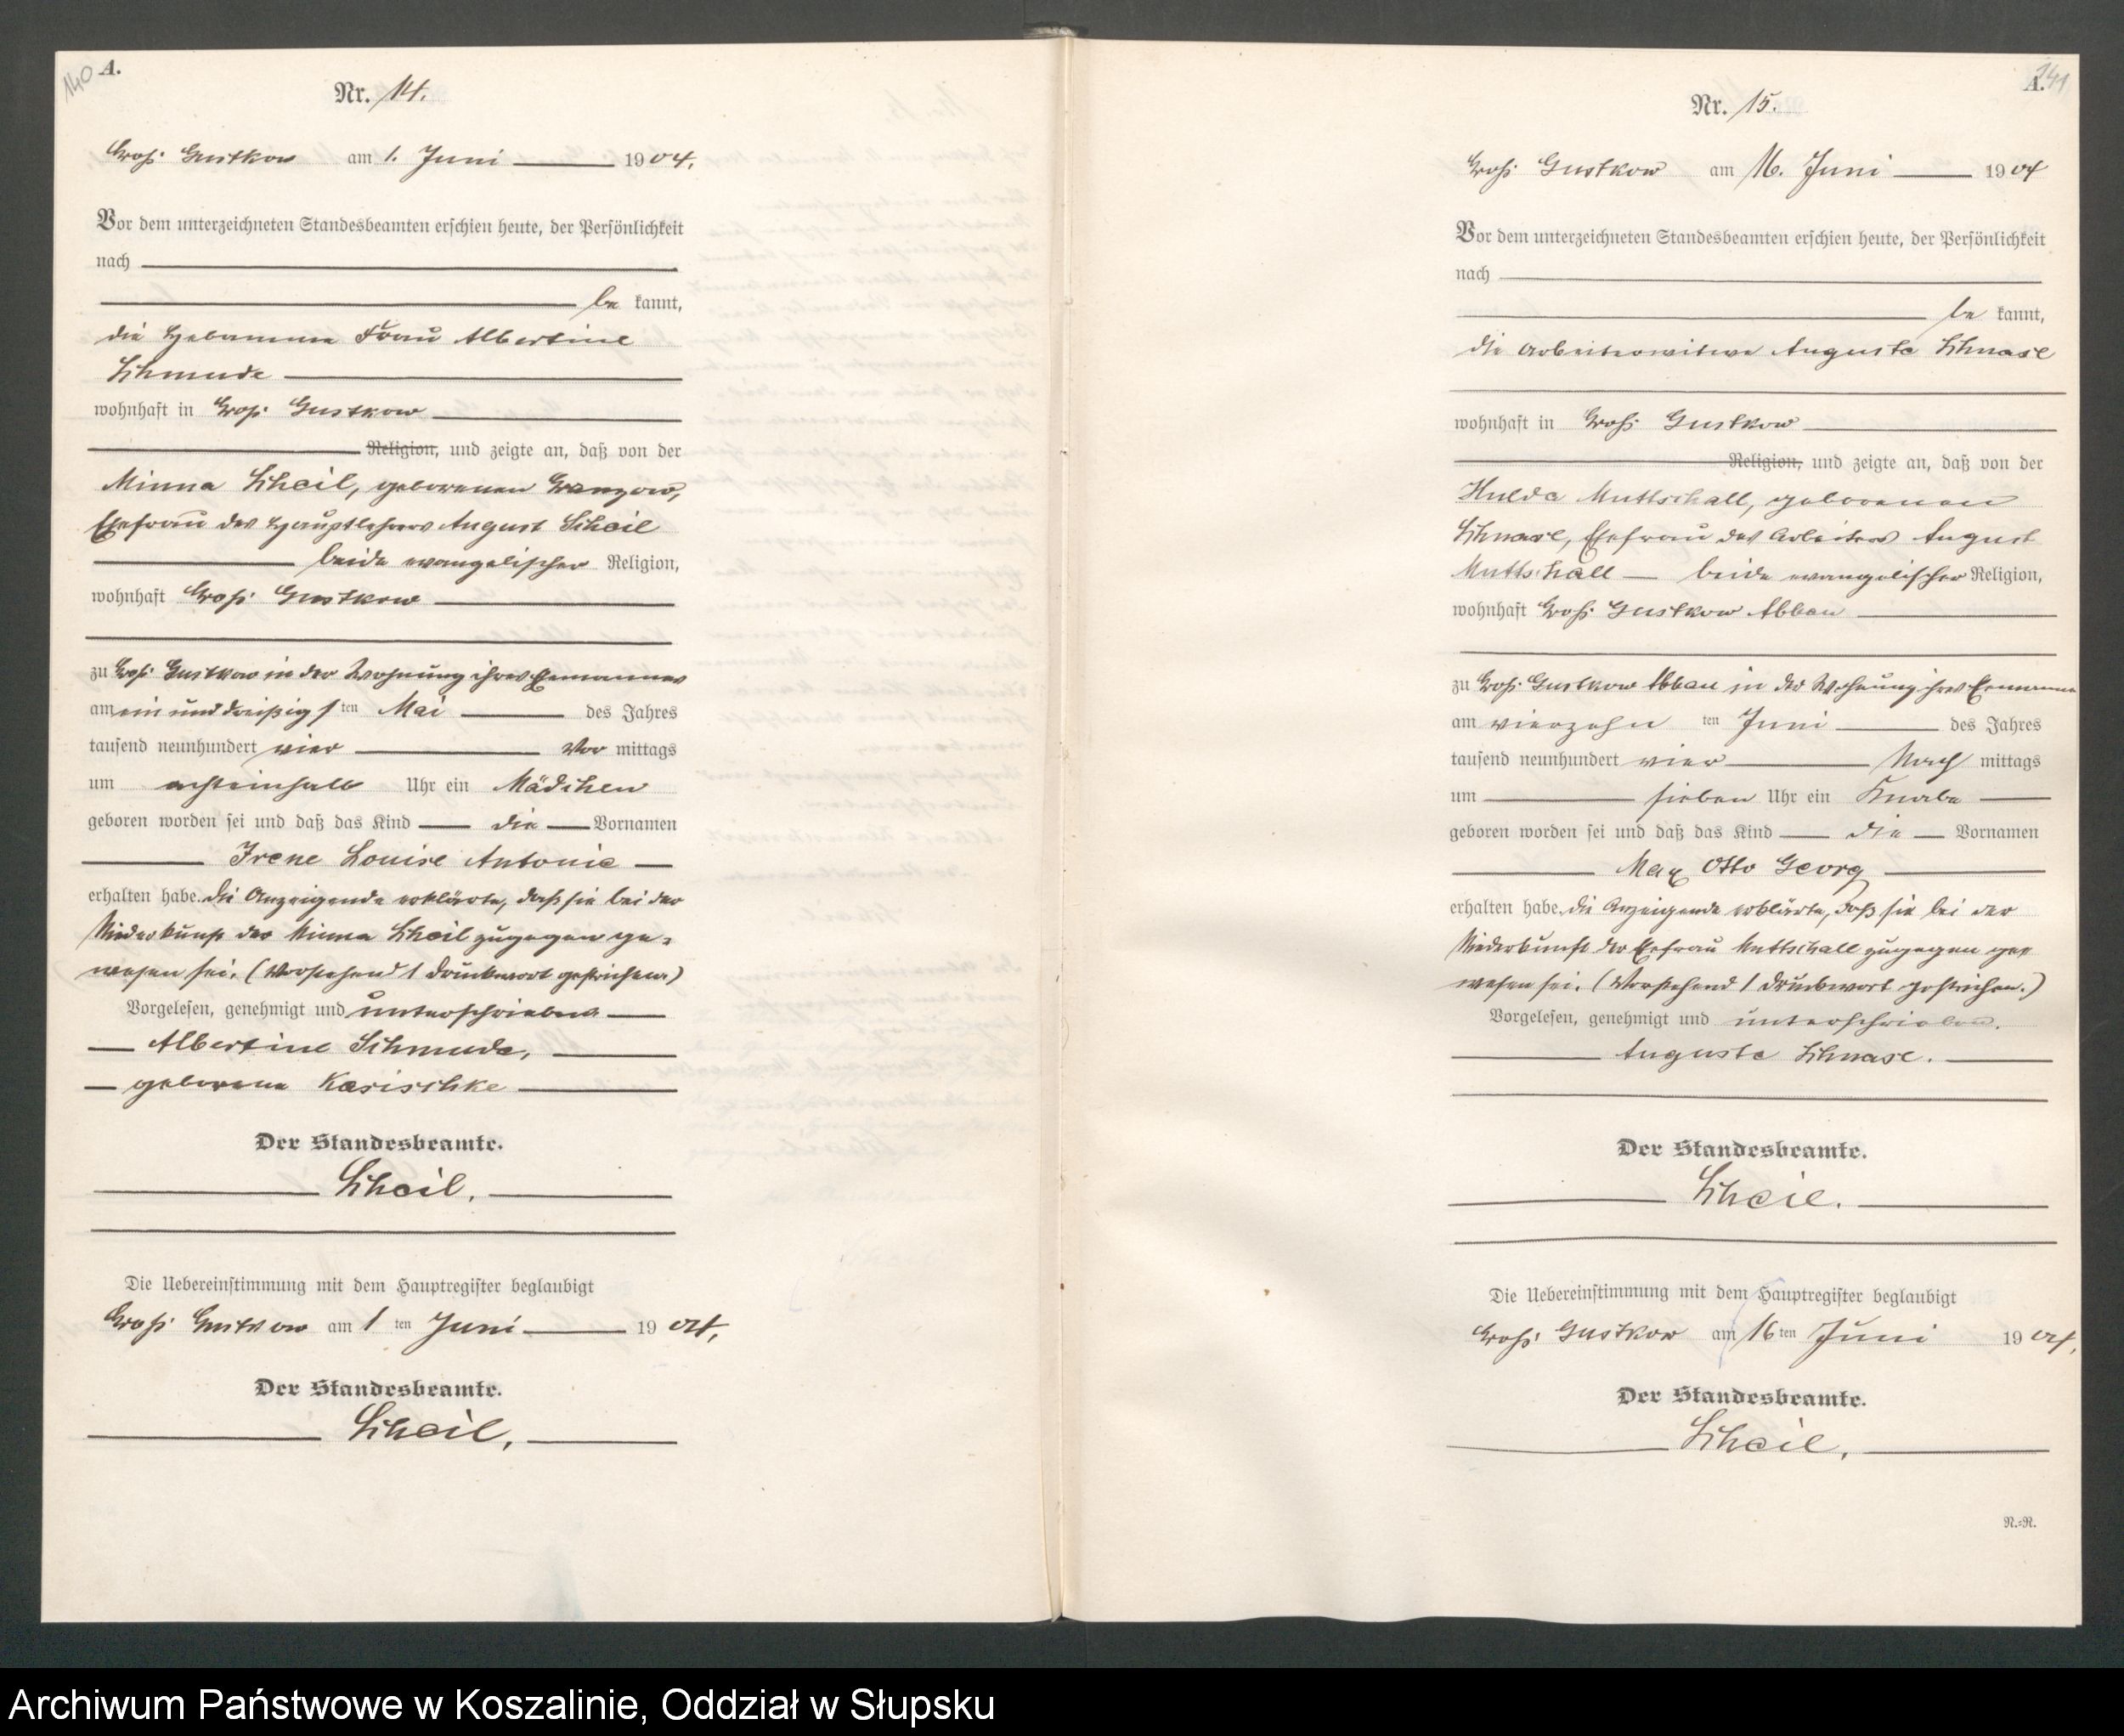 140 A.
Nr. 14.
Groß Gustkow am 1. Juni 1904.
Vor dem unterzeichneten Standesbeamten erschien heute, der Persönlichkeit
nach
be kannt,
die Hebamme Frau Albertine
Schmude
wohnhaft in Groß Gustkow
Religion, und zeigte an, daß von der
Minna Scheil, geborenen Granzow,
Ehefrau des Hauptlehrers August Scheil
beide evangelischer Religion,
wohnhaft Groß Gustkow
zu Groß Gustkow in der Wohnung ihres Ehemannes
am ein und dreißigsten Mai des Jahres
tausend neunhundert vier Vor mittags
um achteinhalb Uhr ein Mädchen
geboren worden sei und daß das Kind die Vornamen
Irene Louise Antonie
erhalten habe. Die Anzeigende erklärte, daß sie bei der
Niederkunft der Minna Scheil zugegen ge=
wesen sei. (Vorstehend 1 Druckwort gestrichen.)
Vorgelesen, genehmigt und unterschrieben
Albertine Schmude,
geborene Kasischke
Der Standesbeamte.
Scheil.
Die Uebereinstimmung mit dem Hauptregister beglaubigt
Groß Gustkow am 1 ten Juni 1904.
Der Standesbeamte.
Scheil.
141
A.
Nr. 15.
Groß Gustkow am 16. Juni 1904
Vor dem unterzeichneten Standesbeamten erschien heute, der Persönlichkeit
nach
be kannt,
die Arbeiterwitwe Auguste Schnase
wohnhaft in Groß Gustkow
Religion, und zeigte an, daß von der
Hulda Muttschall, geborenen
Schnase, Ehefrau des Arbeiters August
Muttschall beide evangelischer Religion,
wohnhaft Groß Gustkow Abbau
zu Groß Gustkow Abbau in der Wohnung ihres Ehemannes
am vierzehn ten Juni des Jahres
tausend neunhundert vier Nach mittags
um sieben Uhr ein Knabe
geboren worden sei und daß das Kind die Vornamen
Max Otto Georg
erhalten habe. Die Anzeigende erklärte, daß sie bei der
Niederkunft der Ehefrau Muttschall zugegen ge=
wesen sei. (Vorstehend 1 Druckwort gestrichen.)
Vorgelesen, genehmigt und unterschrieben.
Auguste Schnase.
Der Standesbeamte.
Scheil.
Die Uebereinstimmung mit dem Hauptregister beglaubigt
Groß Gustkow am 16 ten Juni 1904.
Der Standesbeamte.
Scheil.
N.=R.
Archiwum Państwowe w Koszalinie, Oddział w Słupsku